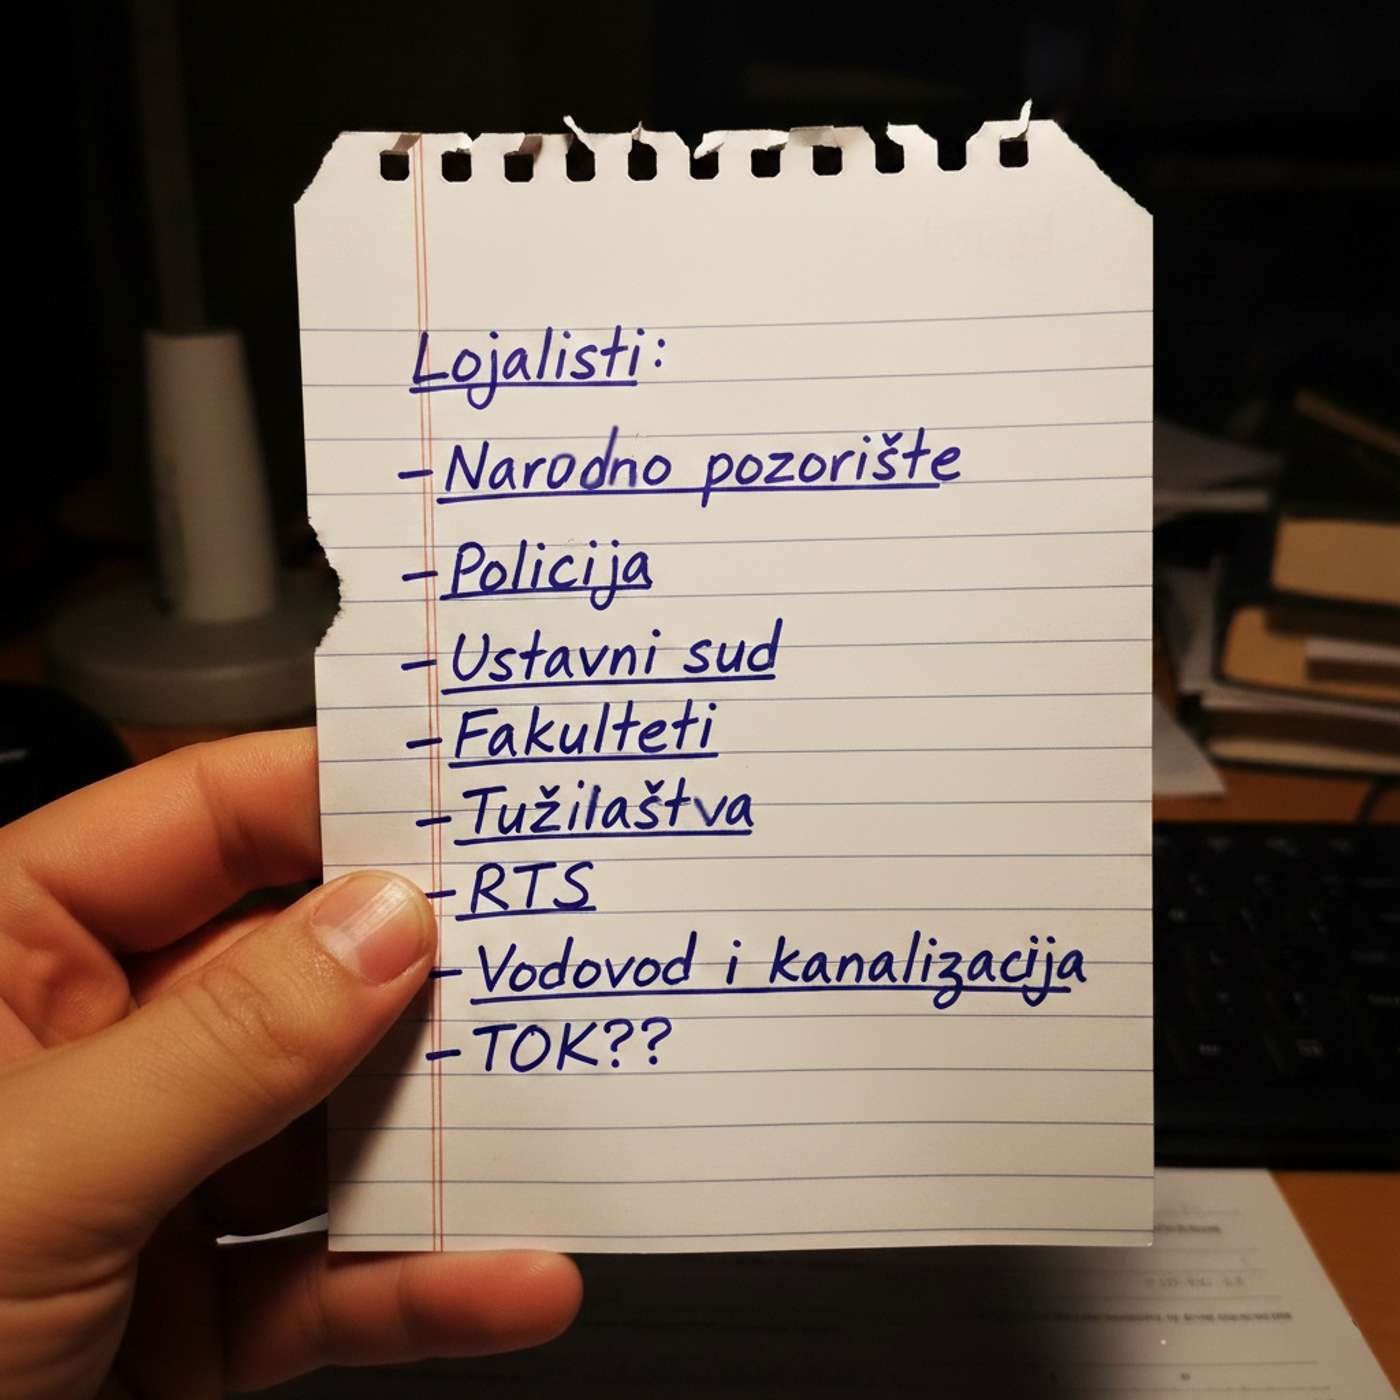 Lojalisti:
- Narodno pozorište
- Policija
- Ustavni sud
- Fakulteti
- Tužilaštva
- RTS
- Vodovod i kanalizacija
- TOK??